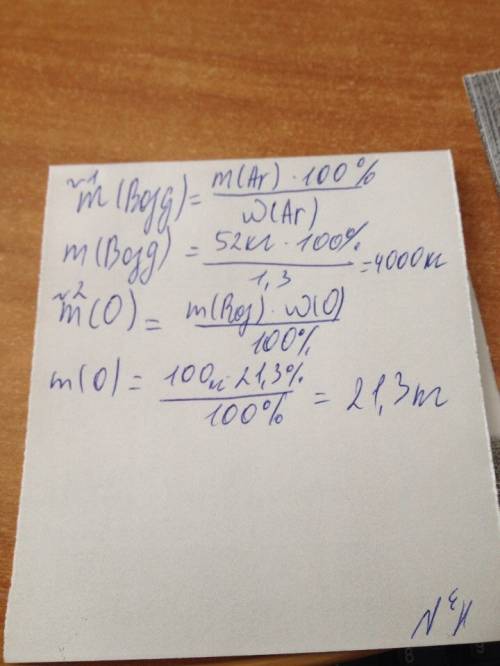 №1
m(Возд) = m(Ar) · 100% / w(Ar)
m(Возд) = 52кг · 100% / 1,3 = 4000кг
№2
m(O) = m(Воз) · w(O) / 100%
m(O) = 100кг · 21,3% / 100% = 21,3кг